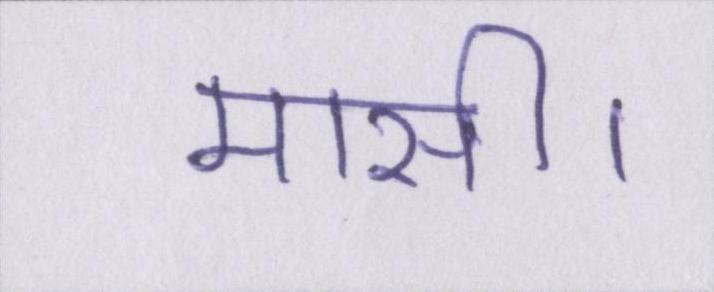 मासी।